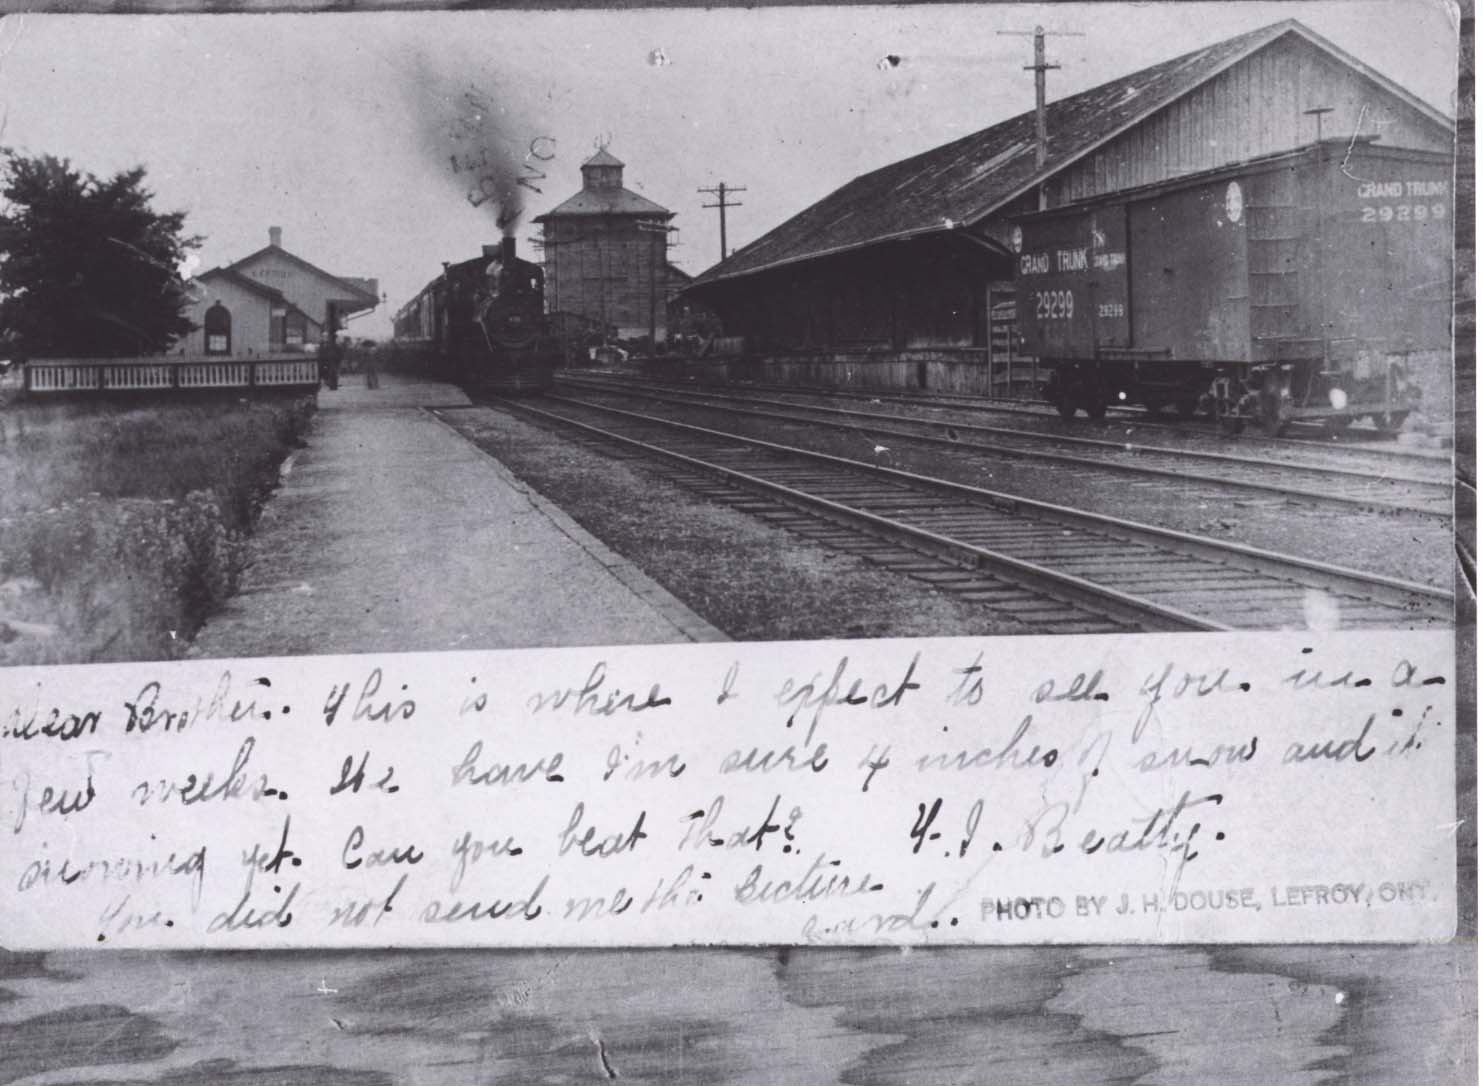 LEFROY
GRAND TRUNK
29299
GRAND TRUNK
29299
GRAND TRUNK
29299
Dear Brother. This is where I expect to see you in a
few weeks. We have I'm sure 4 inches of snow and it
snowing yet. Can you beat that? J. Beatty.
You did not send me the picture
card.
PHOTO BY J. H. DOUSE, LEFROY, ONT.